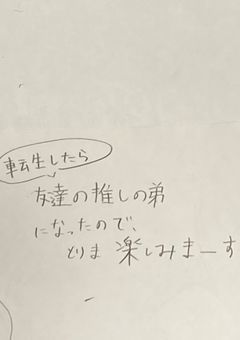 転生したら
友達の推しの弟
になったので、
とりま 楽しみまーす